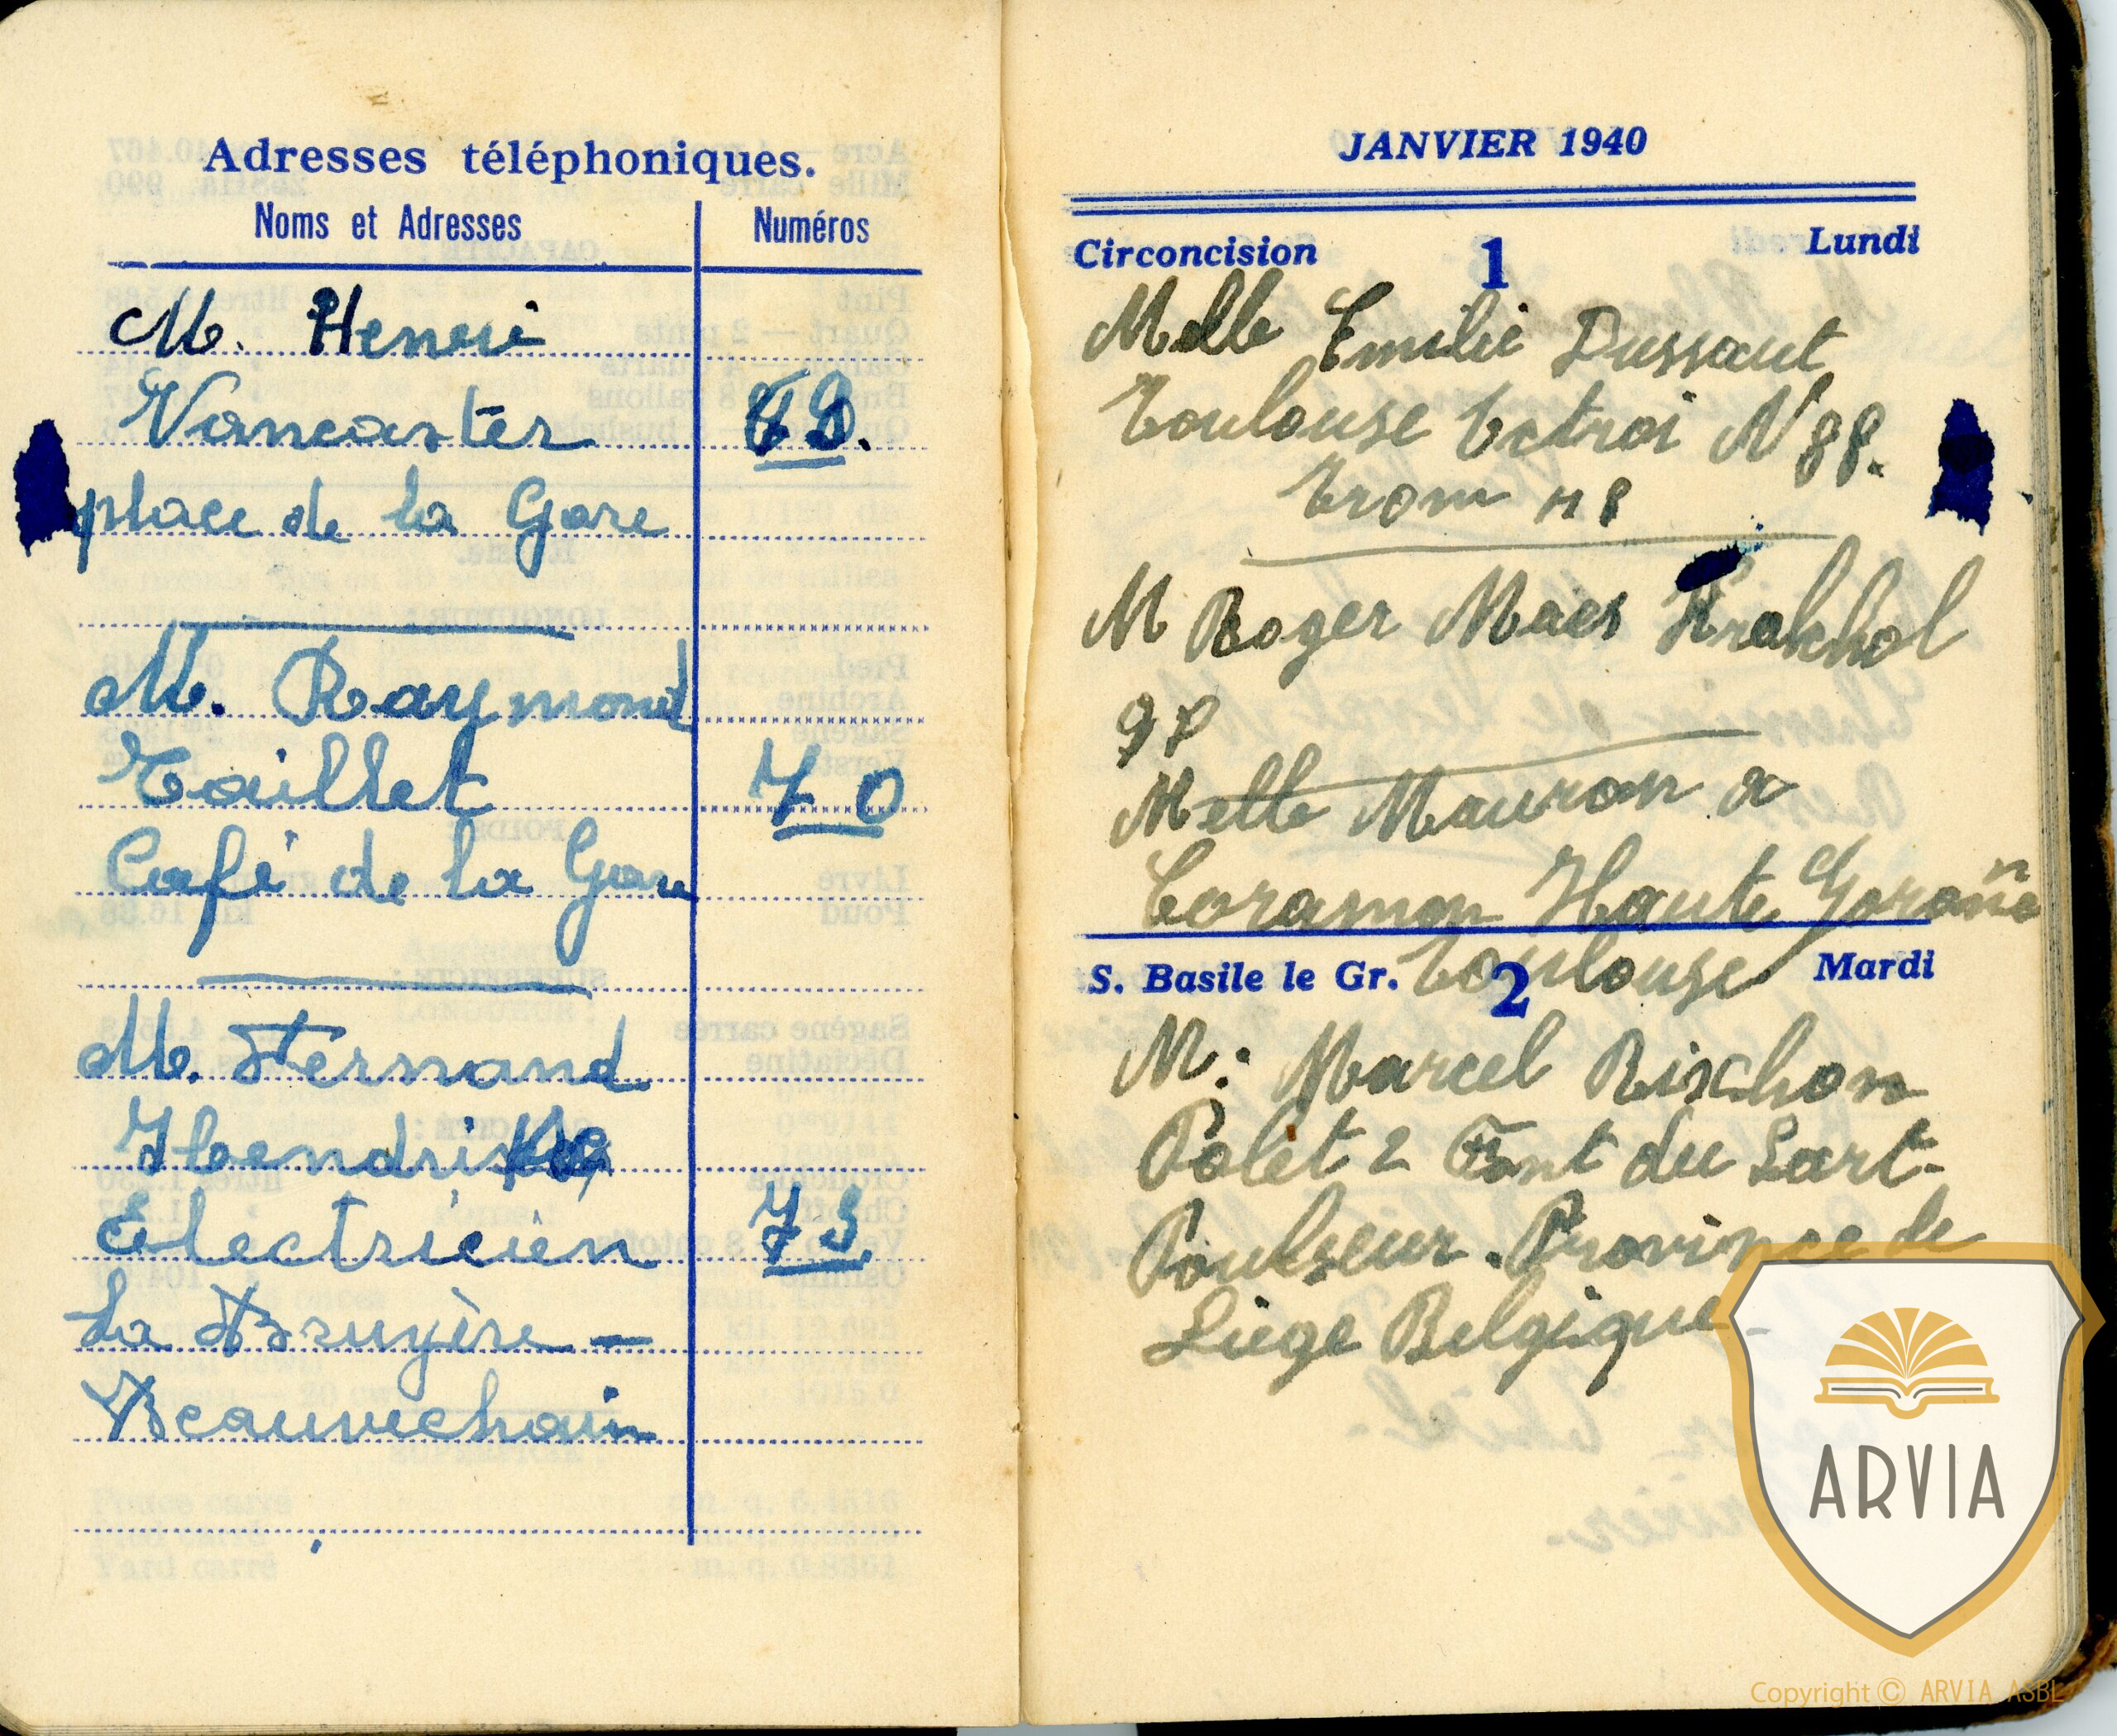 Adresses téléphoniques.
Noms et Adresses Numéros
M. Henri
Vancaster
place de la Gare
M. Raymond
Taillet 70
Café de la Gare
M. Fernand
Electricien 73
La Bruyère -
Beauvechain
JANVIER 1940
Circoncision 1 Lundi
Melle Emilie Dussaut
Toulouse Octroi N 88.
M Roger Maes
Melle Mauron a
Caraman Haute
S. Basile le Gr. 2 Mardi
Toulouse
M: Marcel Rixhon
du Sart-
Poulseur. Province de
Liège Belgique
ARVIA
Copyright © ARVIA ASBL